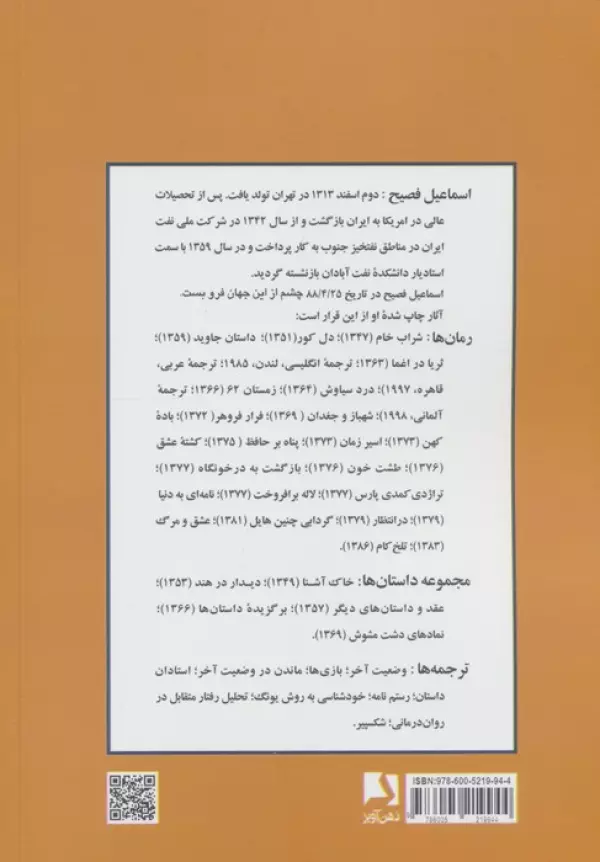 اسماعیل فصیح : دوم اسفند ۱۳۱۳ در تهران تولد یافت. پس از تحصیلات
عالی در امریکا به ایران بازگشت و از سال ۱۳۴۲ در شرکت ملی نفت
ایران در مناطق نفتخیز جنوب به کار پرداخت و در سال ۱۳۵۹ با سمت
استادیار دانشکدهٔ نفت آبادان بازنشسته گردید.
اسماعیل فصیح در تاریخ ۸۸/۴/۲۵ چشم از این جهان فرو بست.
آثار چاپ شدهٔ او از این قرار است:
رمان‌ها : شراب خام (۱۳۴۷)؛ دل کور(۱۳۵۱)؛ داستان جاوید (۱۳۵۹)؛
ثریا در اغما (۱۳۶۳؛ ترجمهٔ انگلیسی، لندن، ۱۹۸۵؛ ترجمهٔ عربی،
قاهره، ۱۹۹۷)؛ درد سیاوش (۱۳۶۴)؛ زمستان ۶۲ (۱۳۶۶؛ ترجمهٔ
آلمانی، ۱۹۹۸)؛ شهباز و جغدان ( ۱۳۶۹)؛ فرار فروهر( ۱۳۷۲)؛ بادهٔ
کهن (۱۳۷۳)؛ اسیر زمان (۱۳۷۳)؛ پناه بر حافظ ( ۱۳۷۵)؛ کشتهٔ عشق
(۱۳۷۶)؛ طشت خون (۱۳۷۶)؛ بازگشت به درخونگاه (۱۳۷۷)؛
تراژدی کمدی پارس (۱۳۷۷)؛ لاله برافروخت (۱۳۷۷)؛ نامه‌ای به دنیا
(۱۳۷۹)؛ درانتظار (۱۳۷۹)؛ گردابی چنین هایل (۱۳۸۱)؛ عشق و مرگ
(۱۳۸۳)؛ تلخ‌کام (۱۳۸۶).
مجموعه داستان‌ها: خاک آشنا (۱۳۴۹)؛ دیدار در هند (۱۳۵۳)؛
عقد و داستان‌های دیگر (۱۳۵۷)؛ برگزیدهٔ داستان‌ها (۱۳۶۶)؛
نمادهای دشت مشوش (۱۳۶۹).
ترجمه‌ها : وضعیت آخر؛ بازی‌ها؛ ماندن در وضعیت آخر؛ استادان
داستان؛ رستم نامه؛ خودشناسی به روش یونگ؛ تحلیل رفتار متقابل در
روان‌درمانی؛ شکسپیر.
ISBN:978-600-5219-94-4
ذهن‌آویز
786005 219944